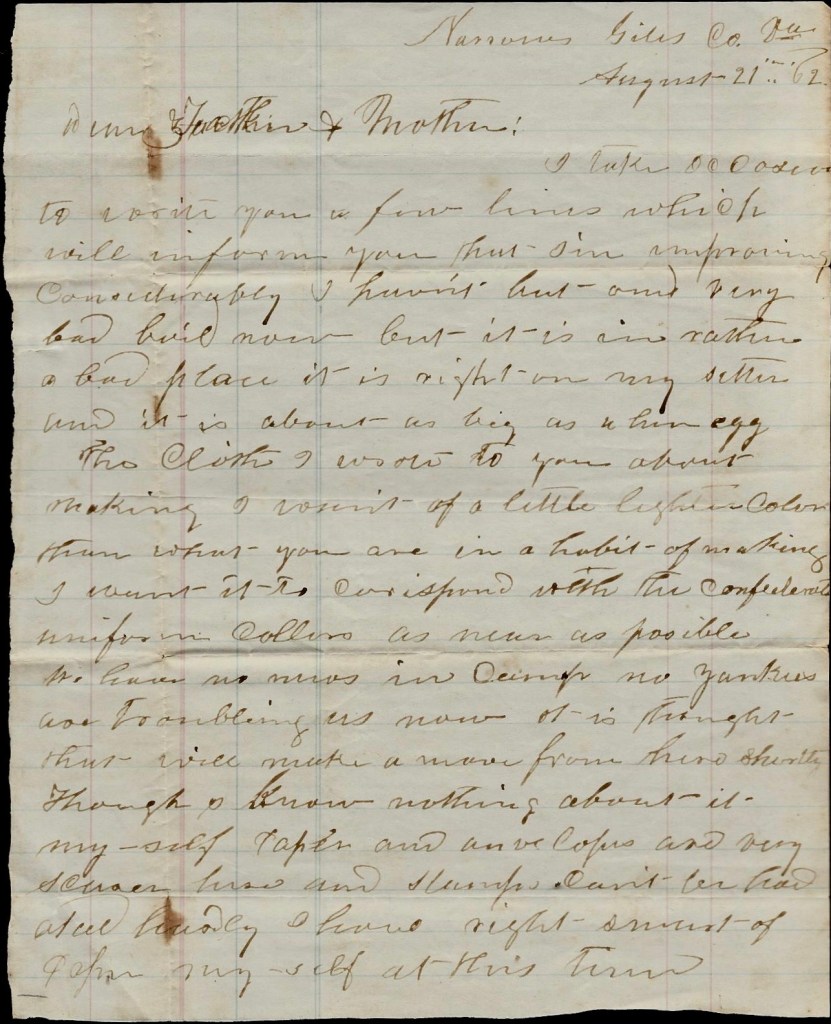 Narrows Giles Co. Va
August 21st 62.
Dear Father & Mother:
I take occasion
to write you a few lines which
will inform you that I'm improving
Considerably I havn't but one very
bad boil now but it is in rather
a bad place it is right on my setter
and it is about as big as a hen egg
The Cloth I wrote to you about
making I want of a little lighter Color
than what you are in a habit of making
I want it to Corispond with the Confederate
uniform Collors as near as posible
We have no news in Camp no Yankees
are Troubling us now it is thought
that will make a move from here shortly
Though I Know nothing about it
my-self Paper and anvelopes are very
scearce here and stamps Can't be had
atal hardly I have right smart of
Paper my-self at this time